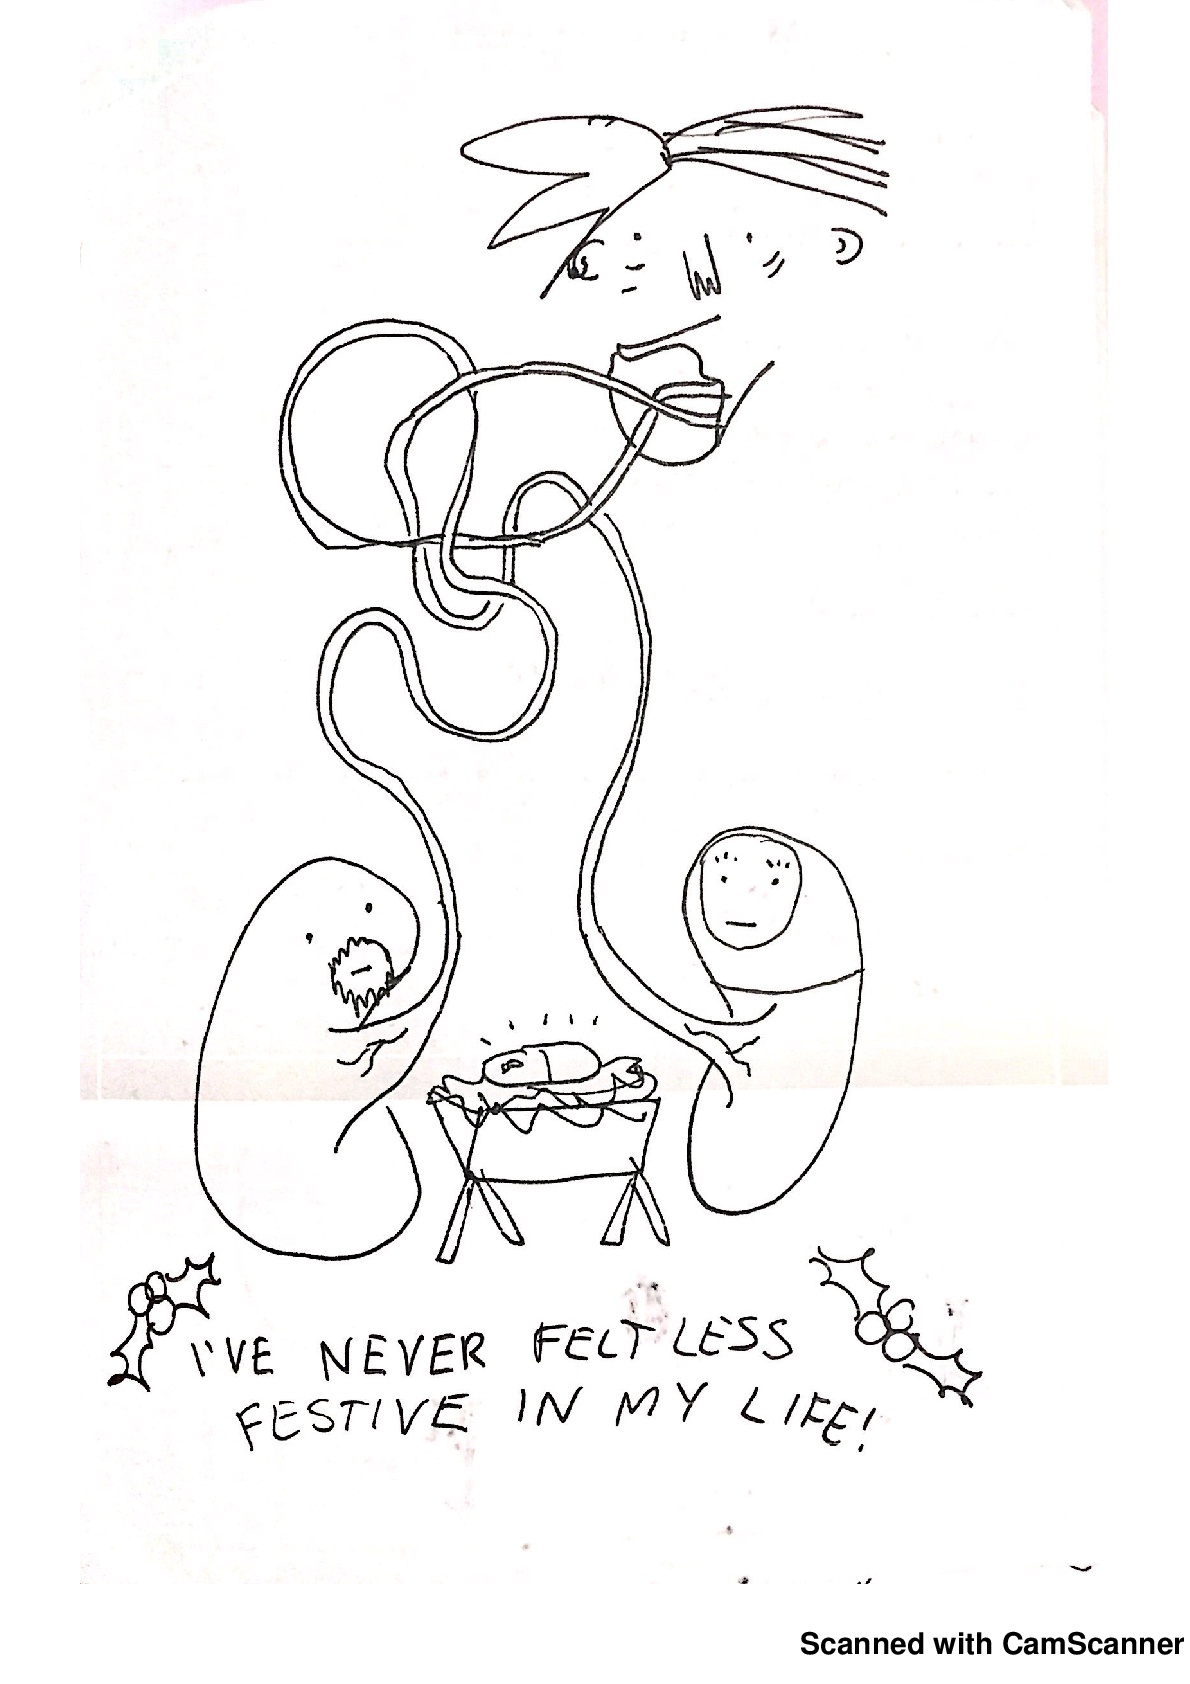 I'VE NEVER FELT LESS
FESTIVE IN MY LIFE!
Scanned with CamScanner